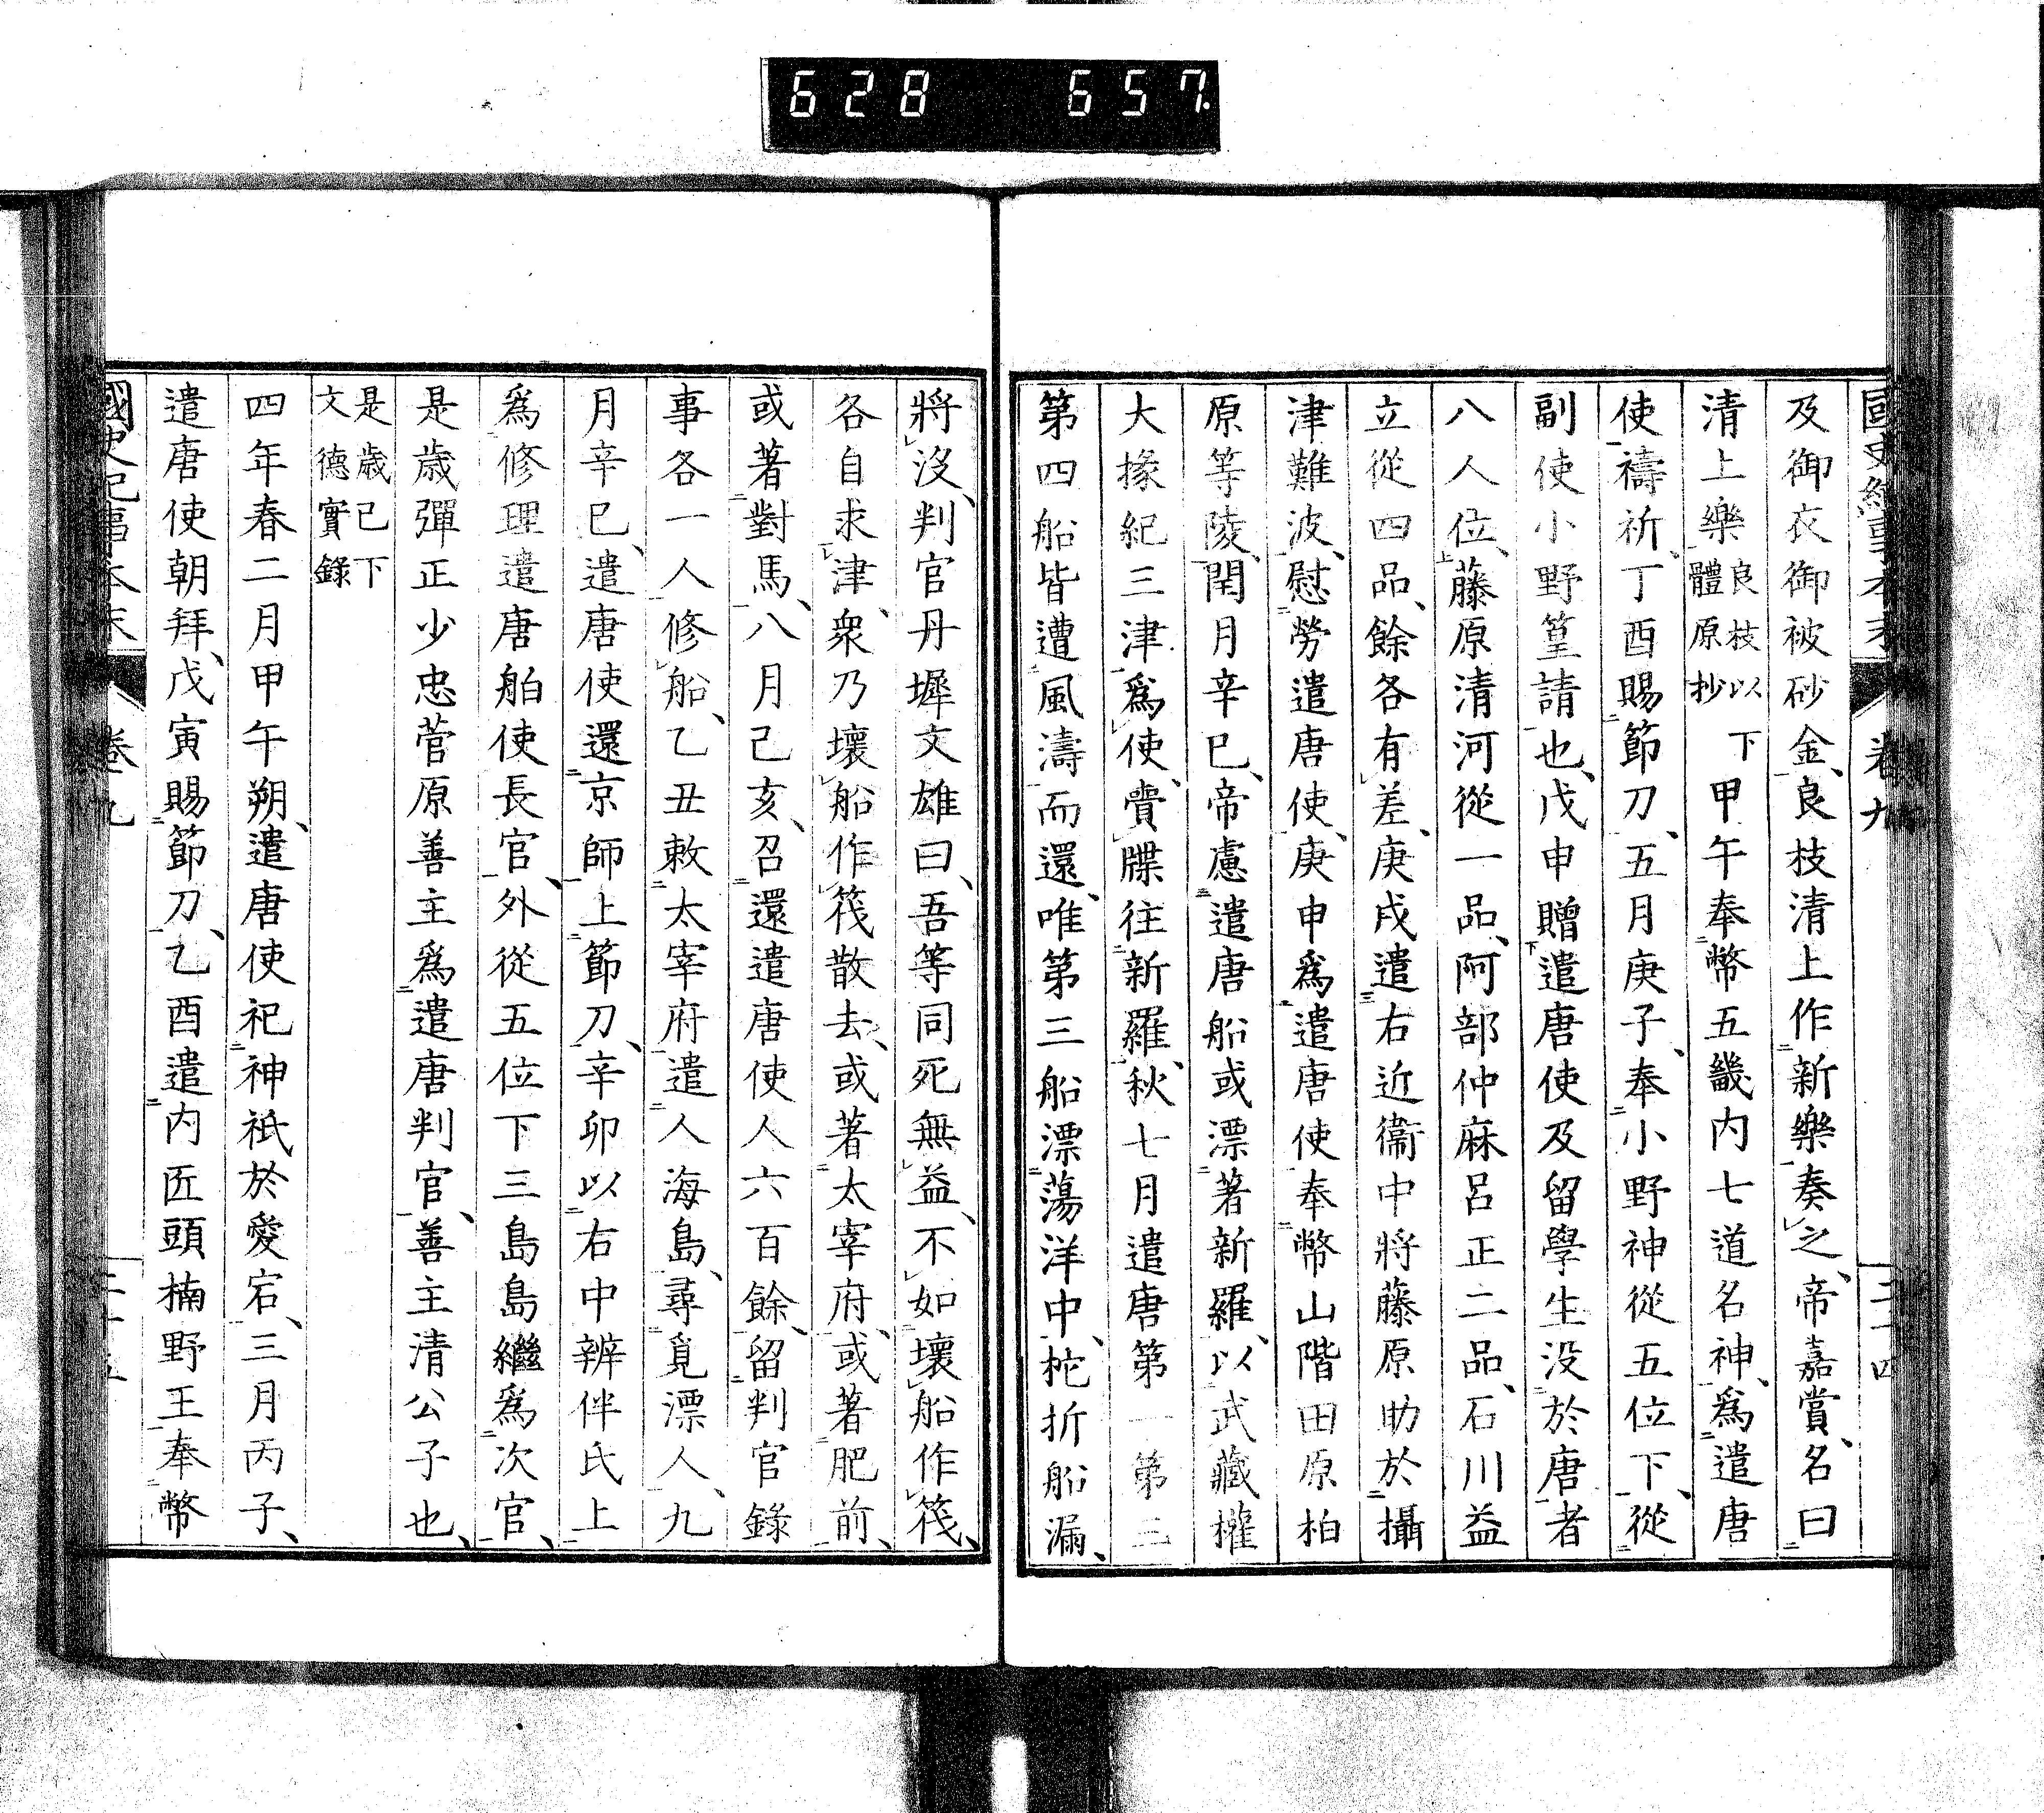 628 657
國史紀事本末 卷九 二十四
及御衣御被砂金、良枝清上作新樂奏之、帝嘉賞、名曰
清上樂良枝以下體原抄甲午奉幣五畿内七道名神、爲遣唐
使禱祈、丁酉賜節刀、五月庚子、奉小野神從五位下、從
副使小野篁請也、戊申贈遣唐使及留學生没於唐者
八人位、藤原清河從一品、阿部仲麻呂正二品、石川益
立從四品、餘各有差、庚戌遣右近衞中將藤原助於攝
津難波、慰勞遣唐使、庚申爲遣唐使奉幣山階田原柏
原等陵、閏月辛巳、帝慮遣唐船或漂著新羅、以武藏權
大掾紀三津爲使、賷牒往新羅、秋七月遣唐第一第二
第四船皆遭風濤而還、唯第三船漂蕩洋中、柁折船漏、
將沒、判官丹墀文雄曰、吾等同死無益、不如壞船作筏、
各自求津、衆乃壞船作筏散去、或著太宰府、或著肥前、
或著對馬、八月己亥、召還遣唐使人六百餘、留判官錄
事各一人修船、乙丑敕太宰府遣人海島、尋覓漂人、九
月辛巳、遣唐使還京師上節刀、辛卯以右中辨伴氏上
爲修理遣唐舶使長官、外從五位下三島島繼爲次官、
是歲彈正少忠菅原善主爲遣唐判官、善主清公子也、
是歲已下
文德實錄
四年春二月甲午朔、遣唐使祀神祇於愛宕、三月丙子、
遣唐使朝拜、戊寅賜節刀、乙酉遣内匠頭楠野王奉幣
國史紀事本末 卷九 二十五